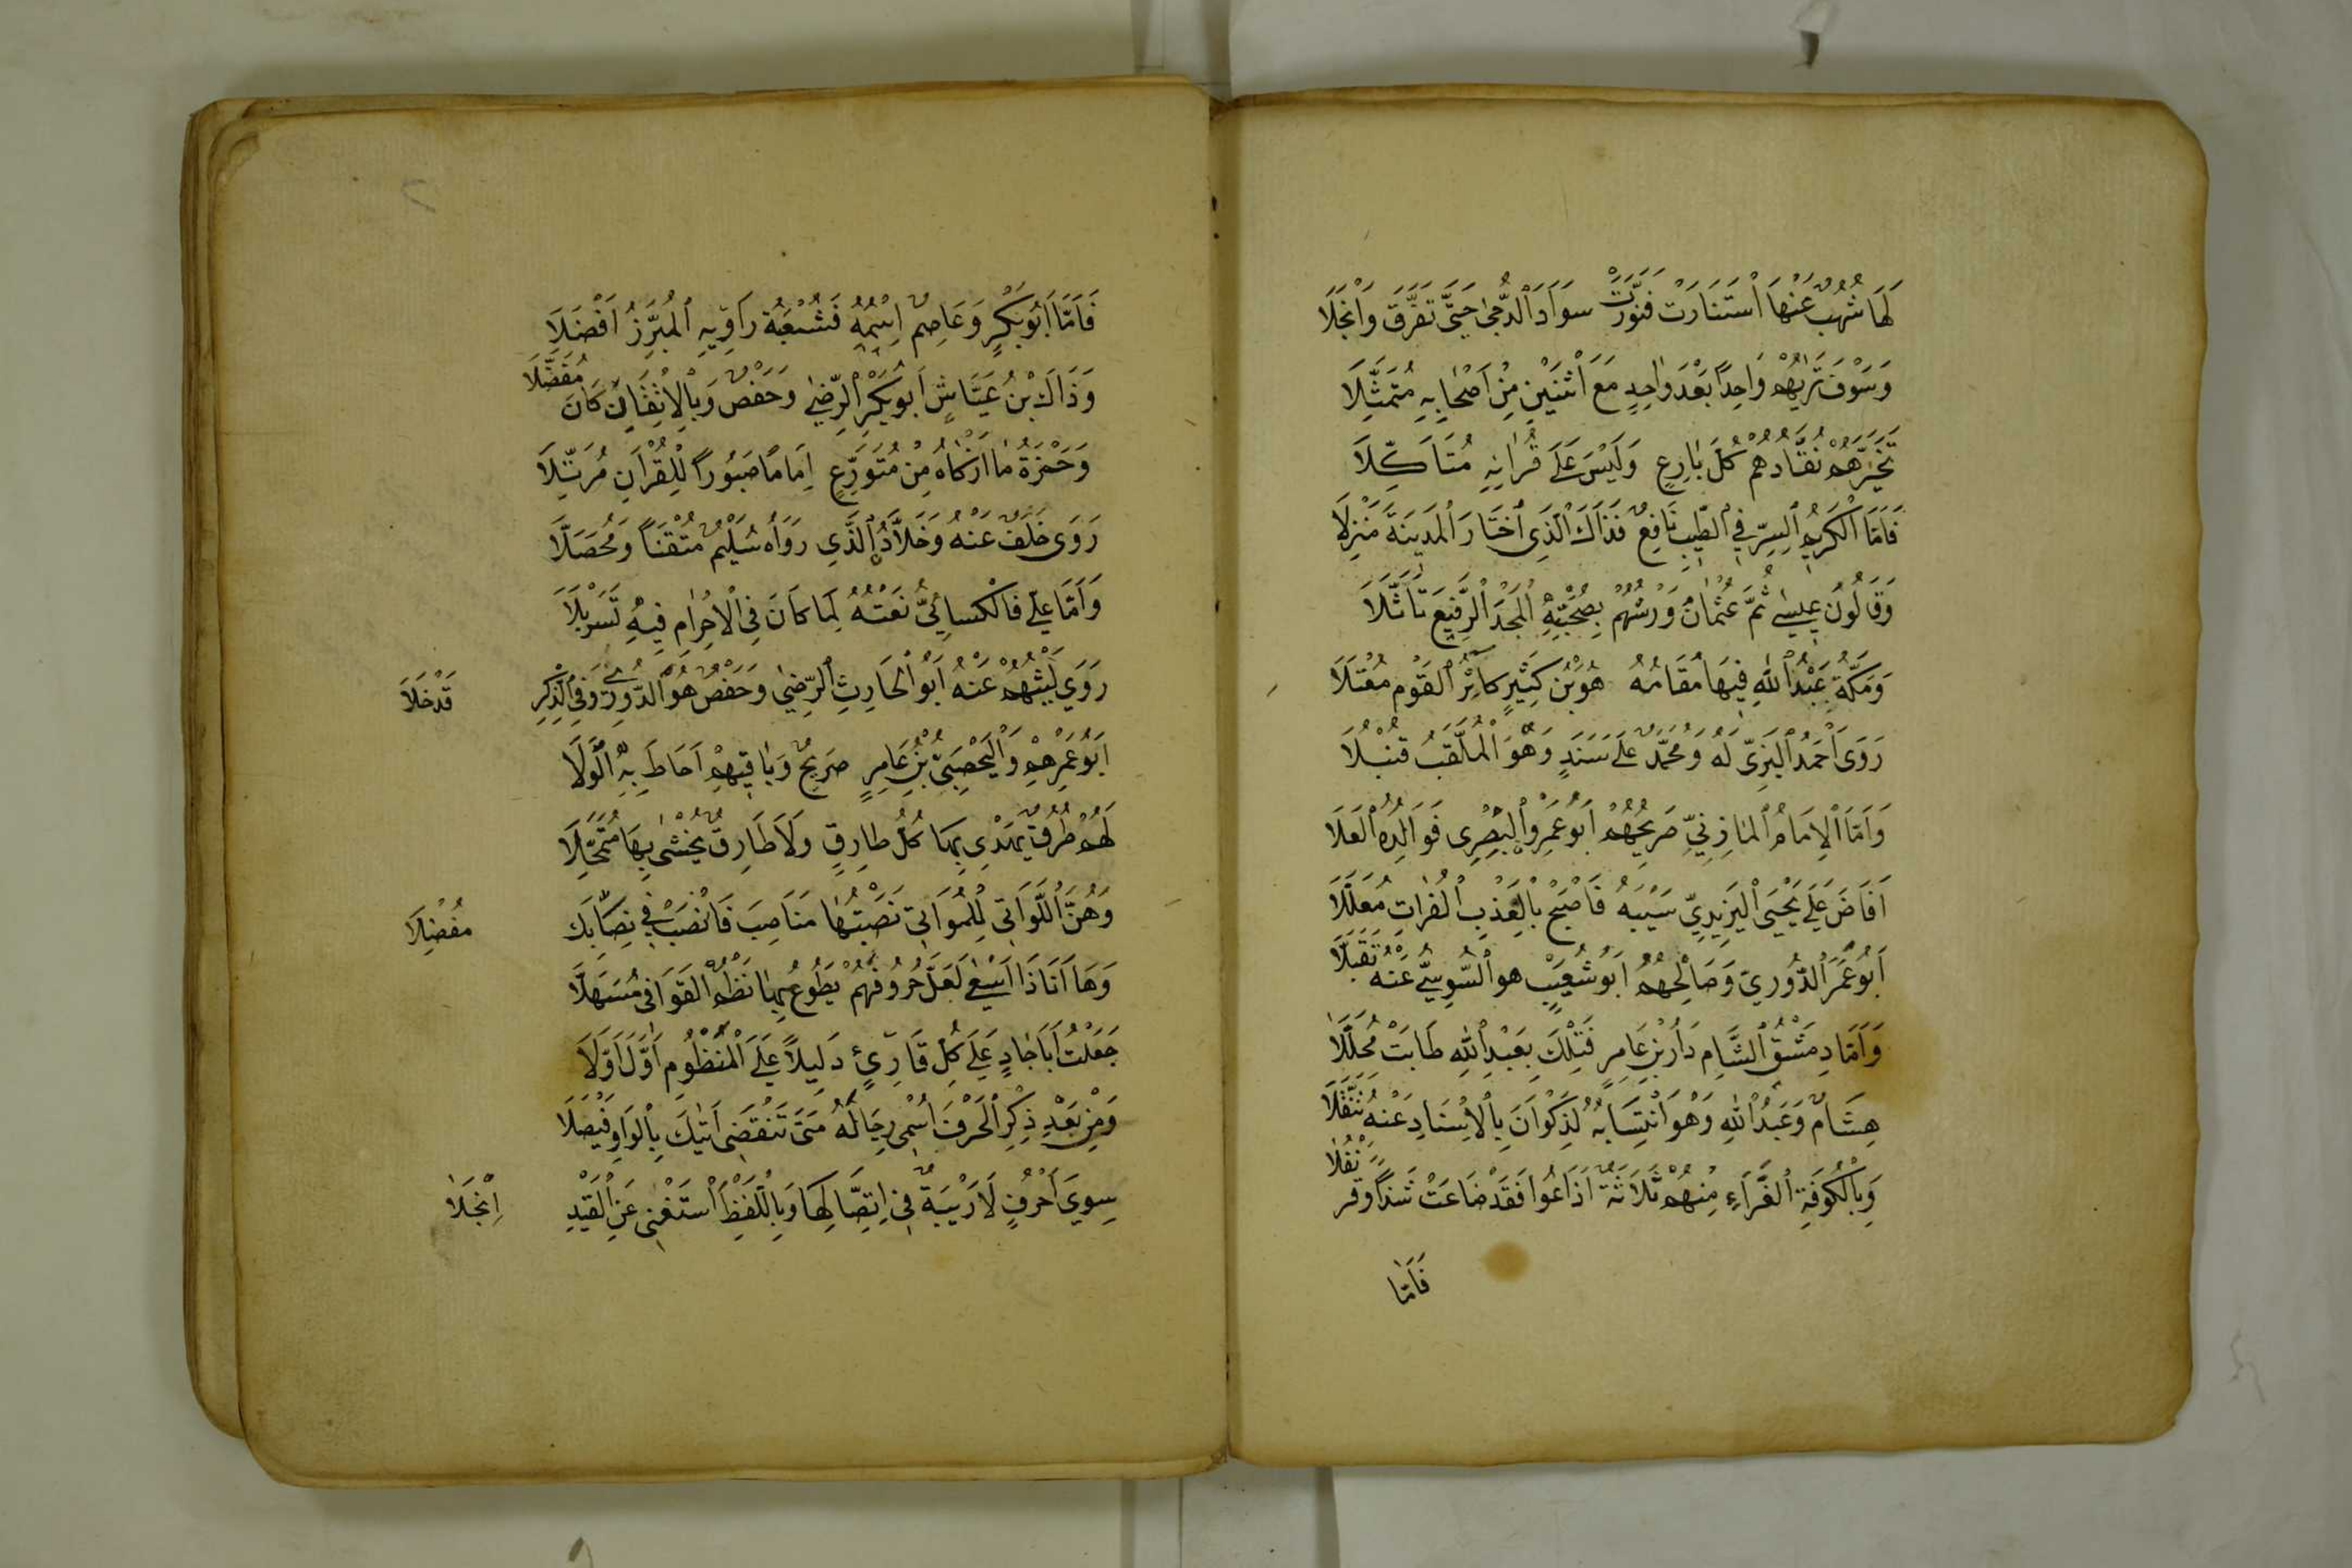 لَهَا شُهُبٌ عَنْهَا اَسْتَنَارَتْ فَنَوَّرَتْ سَوَادَ اَلدُّجٰى حَتَّى تَفَرَّقَ وَاَنْجَلَا
وَسَوْفَ تَرٰيهُمْ وَاحِدًا بَعْدَ وٰاحِدٍ مَعَ اَثْنَيْنِ مِنْ اَصْحٰابِهِ مُتَمَثِّلَا
تَخَيَّرَهُمْ نُقَّادُهُمْ كُلَّ بٰارِعٍ وَلَيْسَ عَلَى قُرٰانِهِ مُتَاَكِّلَا
فَاَمَّا اَلْكَرِيمُ اَلسِّرِّ فِي اَلطِّيبِ نَافِعٌ فَذَاكَ اَلَّذِي اَخْتَارَ اَلْمَدِينَةَ مَنْزِلَا
وَقَالُونُ عِيسٰى ثُمَّ عُثْمٰانُ وَرْشُهُمْ بِصُحْبَتِهِ اَلْمَجْدَ اَلرَّفِيعَ تَاَثَّلَا
وَمَكَّةُ عَبْدُ اَللّٰهِ فِيهَا مُقَامُهُ هُوَ بْنُ كَثِيْرٍ كَاثِرُ اَلْقَوْمِ مُعْتَلَا
رَوَى اَحْمَدُ اَلْبَزِّيّ لَهُ وَمُحَمَّدٌ عَلَى سَنَدٍ وَهُوَ اَلْمُلَقَّبُ قُنْبُلَا
وَاَمَّا اَلْاِمَامُ اَلْمَازِنِيّ صَرِيحُهُمْ اَبُو عَمْرٍو اَلْبَصْرِى فَوَالِدُهُ اَلْعَلَا
اَفَاضَ عَلَى يَحْيَى اَلْيَزِيدِيّ سَيْبَهُ فَاَصْبَحَ بِالْعَذْبِ اَلْفُرَاتِ مُعَلَّلَا
اَبُو عُمَرَ اَلدُّورِيّ وَصَالِحُهُمْ اَبُو شُعَيْبٍ هو اَلسُّوسِيُّ عَنْهُ تَقَبَّلَا
وَاَمَّا دِمَشْقُ اَلشَّامِ دَارُ بْنِ عَامِرٍ فَتِلْكَ بِعَبْدِ اَللّٰهِ طَابَتْ مُحَلَّلَا
هِشَامٌ وَعَبْدُ اَللّٰهِ وَهْوَ اَنْتِسَابُهُ لِذَكْوَانَ بِالْاِسْنَادِ عَنْهُ تَنَقَّلَا
وَبِالْكُوفَةِ اَلْغَرَّاءِ مِنْهُمْ ثَلَاثَةٌ اَذَاعُوا فَقَدْ ضَاعَتْ شَذًا وقر نْفُلَا
فَاَمَّا
فَاَمَّا اَبُو بَكْرٍ وَعَاصِمٌ اِسْمُهُ فَشُعْبَةُ رَاوِيهِ اَلْمُبَرِّزُ اَفْضَلَا
وَذَاكَ بْنُ عَيَّاشٍ اَبُو بَكْرٍ اَلرِّضٰى وَحَفْصٌ وَبِالْاِتْقَانِ كَانَ مُفَضَّلَا
وَحَمْزَةُ مٰا اَزْكَاهُ مِنْ مُتَوَرِّعٍ اِمَامًا صَبُورًا لِلْقُرْاٰنِ مُرَتِّلَا
رَوَى خَلَفٌ عَنْهُ وَخَلَّادٌ اَلَّذِي رَوَاهُ سُلَيْمٌ مُتْقَنًا وَمُحَصَّلَا
وَاَمَّا عَلِي فَالْكِسَائِيُّ نَعْتُهُ لِمَا كَانَ فِي الْاِحْرٰامِ فِيهِ تَسَرْبَلَا
رَوَى لَيْثُهُمْ عَنْهُ اَبُو اَلْحَارِثِ اَلرِّضٰى وَحَفْصٌ هُوَ اَلدُّورِيُّ وَفِي اَلذِّكْرِ قَدْ خَلَا
اَبُو عَمْرِهِمْ وَالْيَحْصَبِيُّ بْنُ عَامِرٍ صَرِيحٌ وَبٰاقِيهِمْ اَحَاطَ بِهِ اَلْوَلَا
لَهُمْ طُرُقٌ يَهْدِي بِهَا كُلُّ طَارِقٍ وَلَا طَارِقٌ يُخْشٰى بِهَا مُتَمَحِّلَا
وَهُنَّ اَللَّوَاتِي لِلْمُوَاتِي نَصَبْتُهٰا مَنَاصِبَ فَانْصَبْ فِي نِصَابِكَ مُفْضِلَا
وَهَا اَنَا ذَا اَسْعٰى لَعَلَّ حُرُوفَهُمْ يَطُوعُ بِهٰا نَظْمُ اَلْقَوَافِى مُسَهِّلَا
جَعَلْتُ اَبَا جَادٍ عَلَى كُلِّ قَارِئٍ دَلِيلًا عَلَى اَلْمَنْظُومِ اَوَّلَ اَوَّلَا
وَمِنْ بَعْدِ ذِكْرِ اَلْحَرْفَ اُسْمِى رِجَالَهُ مَتَى تَنْقَضِى اٰتِيكَ بِالْوَاوِ فَيْصَلَا
سِوٰى اَحْرُفٍ لَا رَيْبَةٌ فِي اِتِّصَالِهَا وَبِاللَّفْظِ اَسْتَغْنِى عَنِ الْقَيْدِ اِنْجَلَا